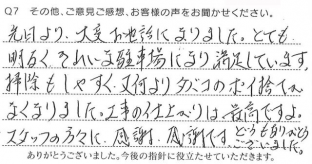 Q7 その他、ご意見ご感想、お客様の声をお聞かせください。
先日より、大変お世話になりました。とても
明るく、きれいな駐車場になり満足しています。
掃除もしやすく、又何よりタバコのポイ捨てが
なくなりました。工事の仕上がりは最高ですよ。
スタッフの方々に、感謝、感謝です。どうもありがとうございました。
ありがとうございました。今後の指針に役立たせていただきます。